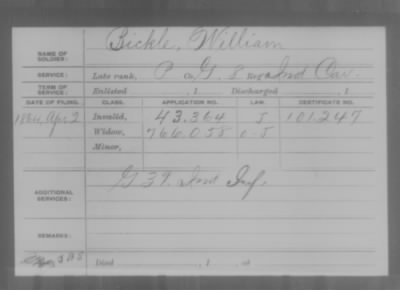 NAME OF SOLDIER: Bickle, William
SERVICE: Late rank, P Co. G, 8 Reg't Ind Cav.
TERM OF SERVICE: Enlisted , 1 Discharged , 1
DATE OF FILING. CLASS. APPLICATION NO. LAW. CERTIFICATE NO.
1864 Apr 2 Invalid, 43.364 J 101.247
Widow, 766.058 0-J
Minor,
ADDITIONAL SERVICES: G 39. Ind Inf.
REMARKS:
Died , 1 , at